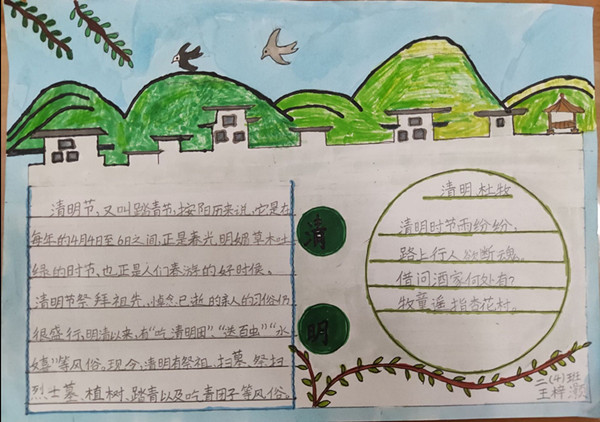 清明节,又叫踏青节,按阳历来说,它是在
每年的4月4日至6日之间,正是春光明媚草木吐
绿的时节,也正是人们春游的好时候。
清明节祭拜祖先,悼念已逝的亲人的习俗仍
很盛行,明清以来,有“吃清明田”、“送百虫”“水
嬉”等风俗,现今,清明有祭祖、扫墓、祭扫
烈士墓、植树、踏青以及吃青团子等风俗。
清
明
清明 杜牧
清明时节雨纷纷,
路上行人欲断魂。
借问酒家何处有?
牧童遥指杏花村。
二(4)班
王梓灏